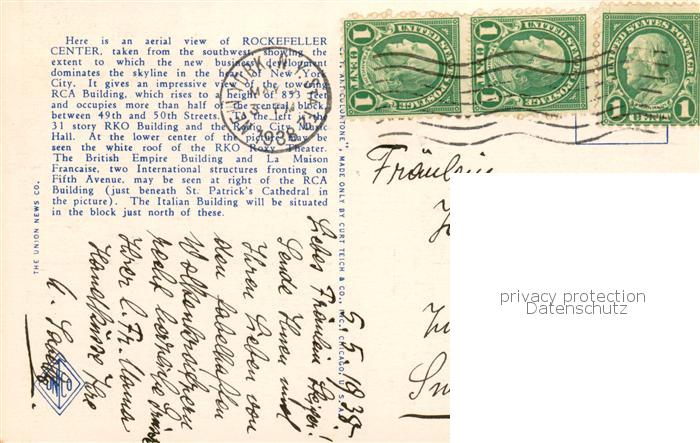 Here is an aerial view of ROCKEFELLER
CENTER, taken from the southwest, showing the
extent to which the new business development
dominates the skyline in the heart of New York
City. It gives an impressive view of the towering
RCA Building, which rises to a height of 853 feet
and occupies more than half of the central block
between 49th and 50th Streets. To the left is the
31 story RKO Building and the Radio City Music
Hall. At the lower center of the picture may be
seen the white roof of the RKO Roxy Theater.
The British Empire Building and La Maison
Francaise, two International structures fronting on
Fifth Avenue, may be seen at right of the RCA
Building (just beneath St. Patrick's Cathedral in
the picture). The Italian Building will be situated
in the block just north of these.
THE UNION NEWS CO.
"C. T. ART-COLORTONE", MADE ONLY BY CURT TEICH & CO., INC., CHICAGO, U. S. A.
UNITED STATES POSTAGE
1 CENT 1
UNITED STATES POSTAGE
1 CENT 1
UNITED STATES POSTAGE
1 CENT 1
1938
Fräulein
5.5.1938
Liebes Fräulein
Sende Ihnen und
Ihren Lieben von
den fabelhaften
Wolkenkratzern
recht herzliche Grüsse
Ihrer l. Fr. Mama
Handküsse Ihre
UNCO
privacy protection
Datenschutz